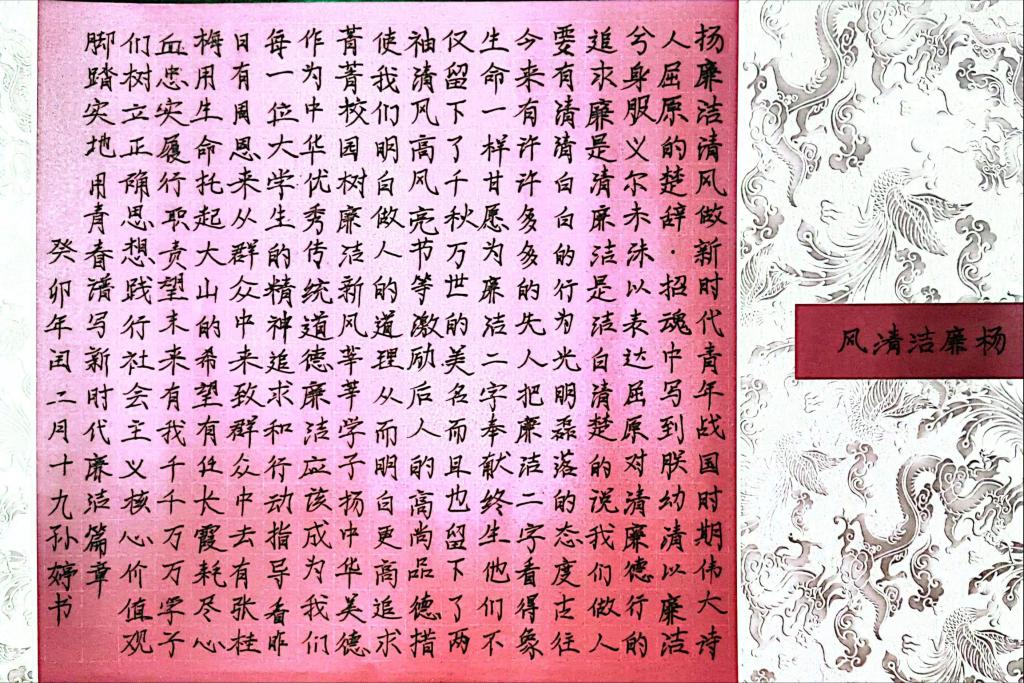 杨廉洁清风
杨廉洁清风做新时代青年战国时期伟大诗
人屈原的楚辞·招魂中写到朕幼清以廉洁
兮身服义尔未沬以表达屈原对清廉德行的
追求廉是清廉洁是洁白清楚的说我们做人
要有清清白白的行为光明磊落的态度古往
今来有许许多多的先人把廉洁二字看得象
生命一样甘愿为廉洁二字奉献终生他们不
仅留下了千秋万世的美名而且也留下了两
袖清风高风亮节等激励后人的高尚品德措
使我们明白做人的道理从而明白更高追求
菁菁校园树廉洁新风莘莘学子扬中华美德
作为中华优秀传统道德廉洁应该成为我们
每一位大学生的精神追求和行动指导看昨
日有周恩来从群众中来致群众中去有张桂
梅用生命托起大山的希望有任长霞耗尽心
血忠实履行职责望未来有我千千万万学子
们树立正确思想践行社会主义核心价值观
脚踏实地用青春谱写新时代廉洁篇章
癸卯年闰二月十九孙婷书